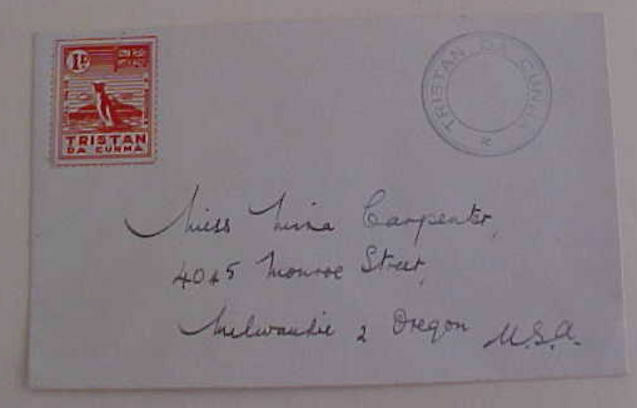 1d
TRISTAN
DA CUNHA
TRISTAN DA CUNHA
Miss Mina Carpenter,
4045 Monroe Street,
Milwaukie 2 Oregon U.S.A.